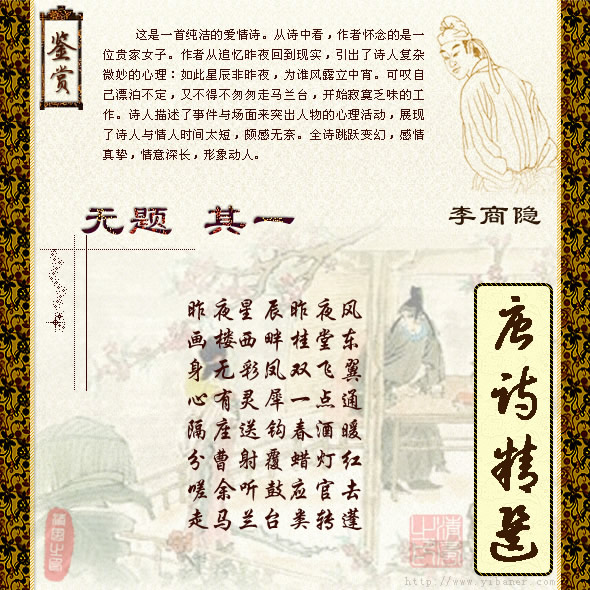 鉴赏
这是一首纯洁的爱情诗。从诗中看，作者怀念的是一
位贵家女子。作者从追忆昨夜回到现实，引出了诗人复杂
微妙的心理：如此星辰非昨夜，为谁风露立中宵。可叹自
己漂泊不定，又不得不匆匆走马兰台，开始寂寞乏味的工
作。诗人描述了事件与场面来突出人物的心理活动，展现
了诗人与情人时间太短，颇感无奈。全诗跳跃变幻，感情
真挚，情意深长，形象动人。
无题 其一
李商隐
昨夜星辰昨夜风
画楼西畔桂堂东
身无彩凤双飞翼
心有灵犀一点通
隔座送钩春酒暖
分曹射覆蜡灯红
嗟余听鼓应官去
走马兰台类转蓬
唐诗精选
http://www.yibaner.com